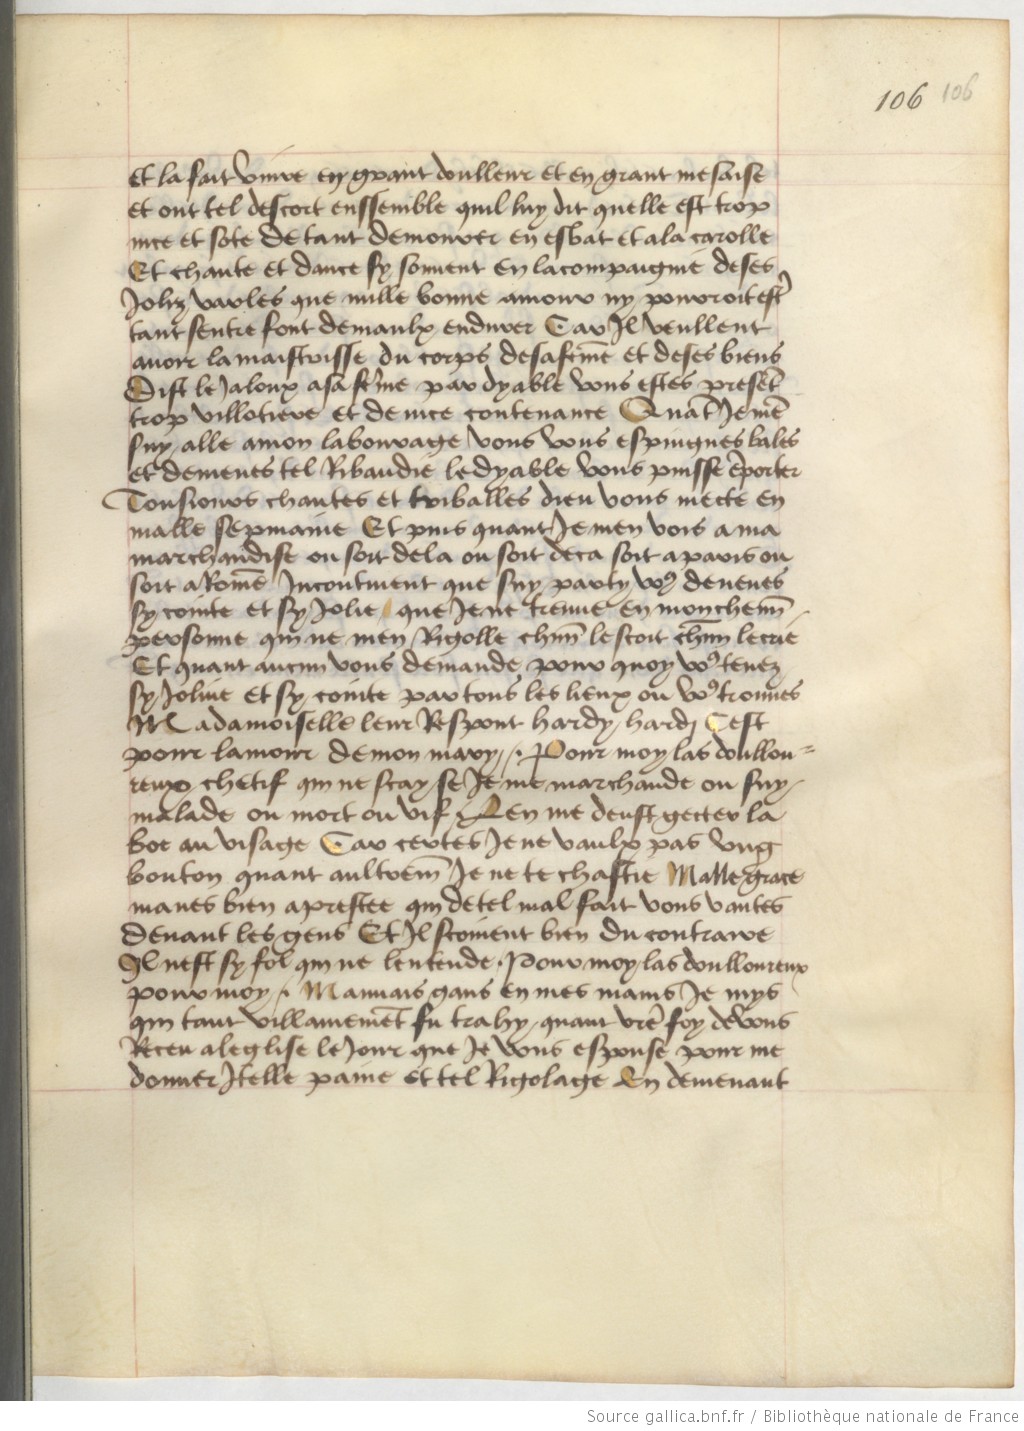 106 106
et la fait vivre en grant doulleur et en grant mesaise
et ont tel descort enssemble quil luy dit quelle est trop
nice et sote de tant demourer en esbat et a la carolle
Et chante et dance sy souvent en la compaignie de ses
Joliz varles que nulle bonne amour ny pourroit estr
tant sentre font de maulx endurer Car Il veullent
avoir la maistrisse du corps de sa feme et de ses biens
Dist le Jaloux a sa feme par dyable vous estes
trop villotiere et de nice contenance Quat Je
suy alle a mon labourage vous vous espingues bales
et demenes tel Ribaudie le dyable vous puisse eporter
Tousiours chantes et triballes dieu vous mecte en
malle sepmaine Et puis quant Je men vois a ma
marchandise ou soit de la ou soit deca soit a paris ou
soit a Rome Incontinent que suy party vo9 devenes
sy cointe et sy Jolie que Je ne treuve en mon chemi
personne qui ne men Rigolle le scoit le crie
Et quant aucun vous demande pour quoy vo9 tenez
sy Jolive et sy cointe par tous les lieux ou vo9 trouves
Madamoiselle leur Respont hardy hardj Cest
pour lamour de mon mary Pour moy las doullou=
reux chetif qui ne scay se Je me marchande ou suy
malade ou mort ou vif Len me deust gecter la
boe au visage Car certes Je ne vaulx pas ung
bouton quant aultrem Je ne te chastie Malle grace
maves bien aprestee qui de tel mal fait vous vantes
devant les gens Et Il scoivent bien du contraire
Il nest sy fol qui ne lentende. Pour moy las doulloureux
pour moy . Mauvais gans en mes mains Je mys
qui tant villainemet fu trahy quant vre foy de vous
Receu a leglise le Jour que Je vous espouse pour me
donner Itelle paine et tel Rigolage En demenant
Source gallica.bnf.fr / Bibliothèque nationale de France